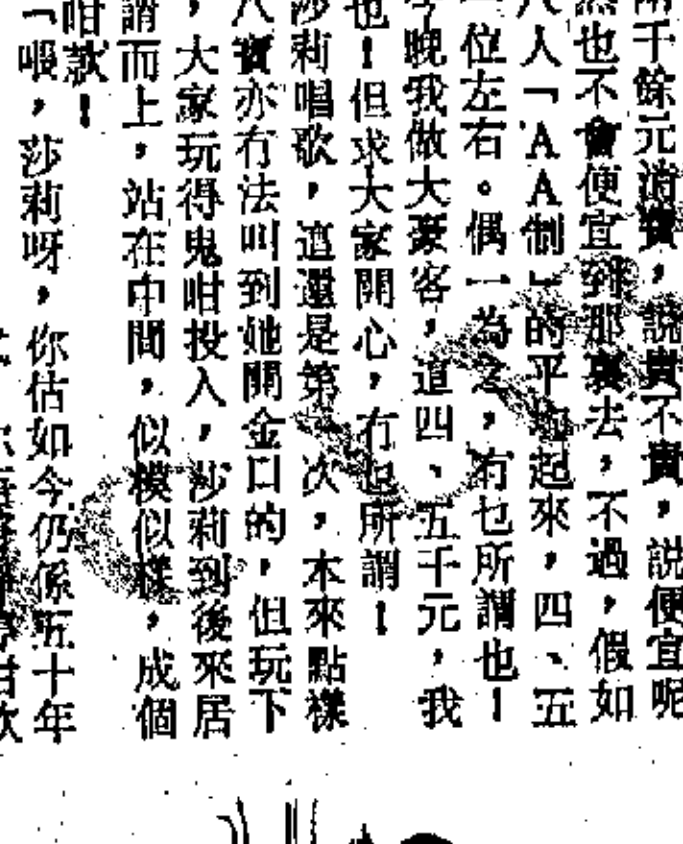 兩千餘元消費，說貴不貴，說便宜呢
然也不會便宜到那裏去，不過，假如
人「AA制」的平均起來，四、五
一位左右。偶一為之，冇乜所謂也！
今晚我做大豪客，這四、五千元，我
也！但求大家開心，冇乜所謂！
莎莉唱歌，這還是第一次，本來點樣
八寶亦冇法叫到她開金口的，但玩下
，大家玩得鬼咁投入，莎莉到後來居
謂而上，站在中間，似模似樣，成個
咁款！
「喂，莎莉呀，你估如今仍係五十年